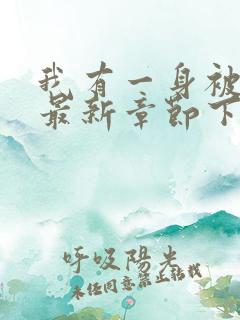 我有一身被
最新章節下
呼吸陽光
未经同意禁止转载